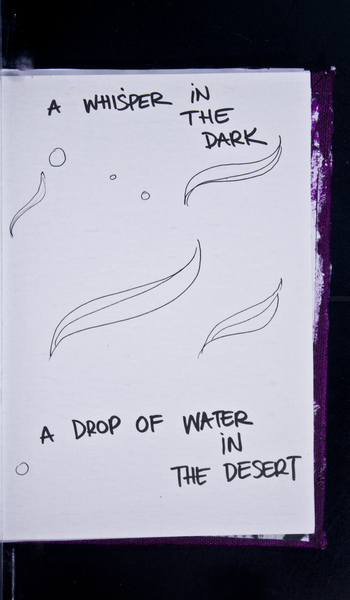 A WHISPER IN
THE
DARK
A DROP OF WATER
IN
THE DESERT